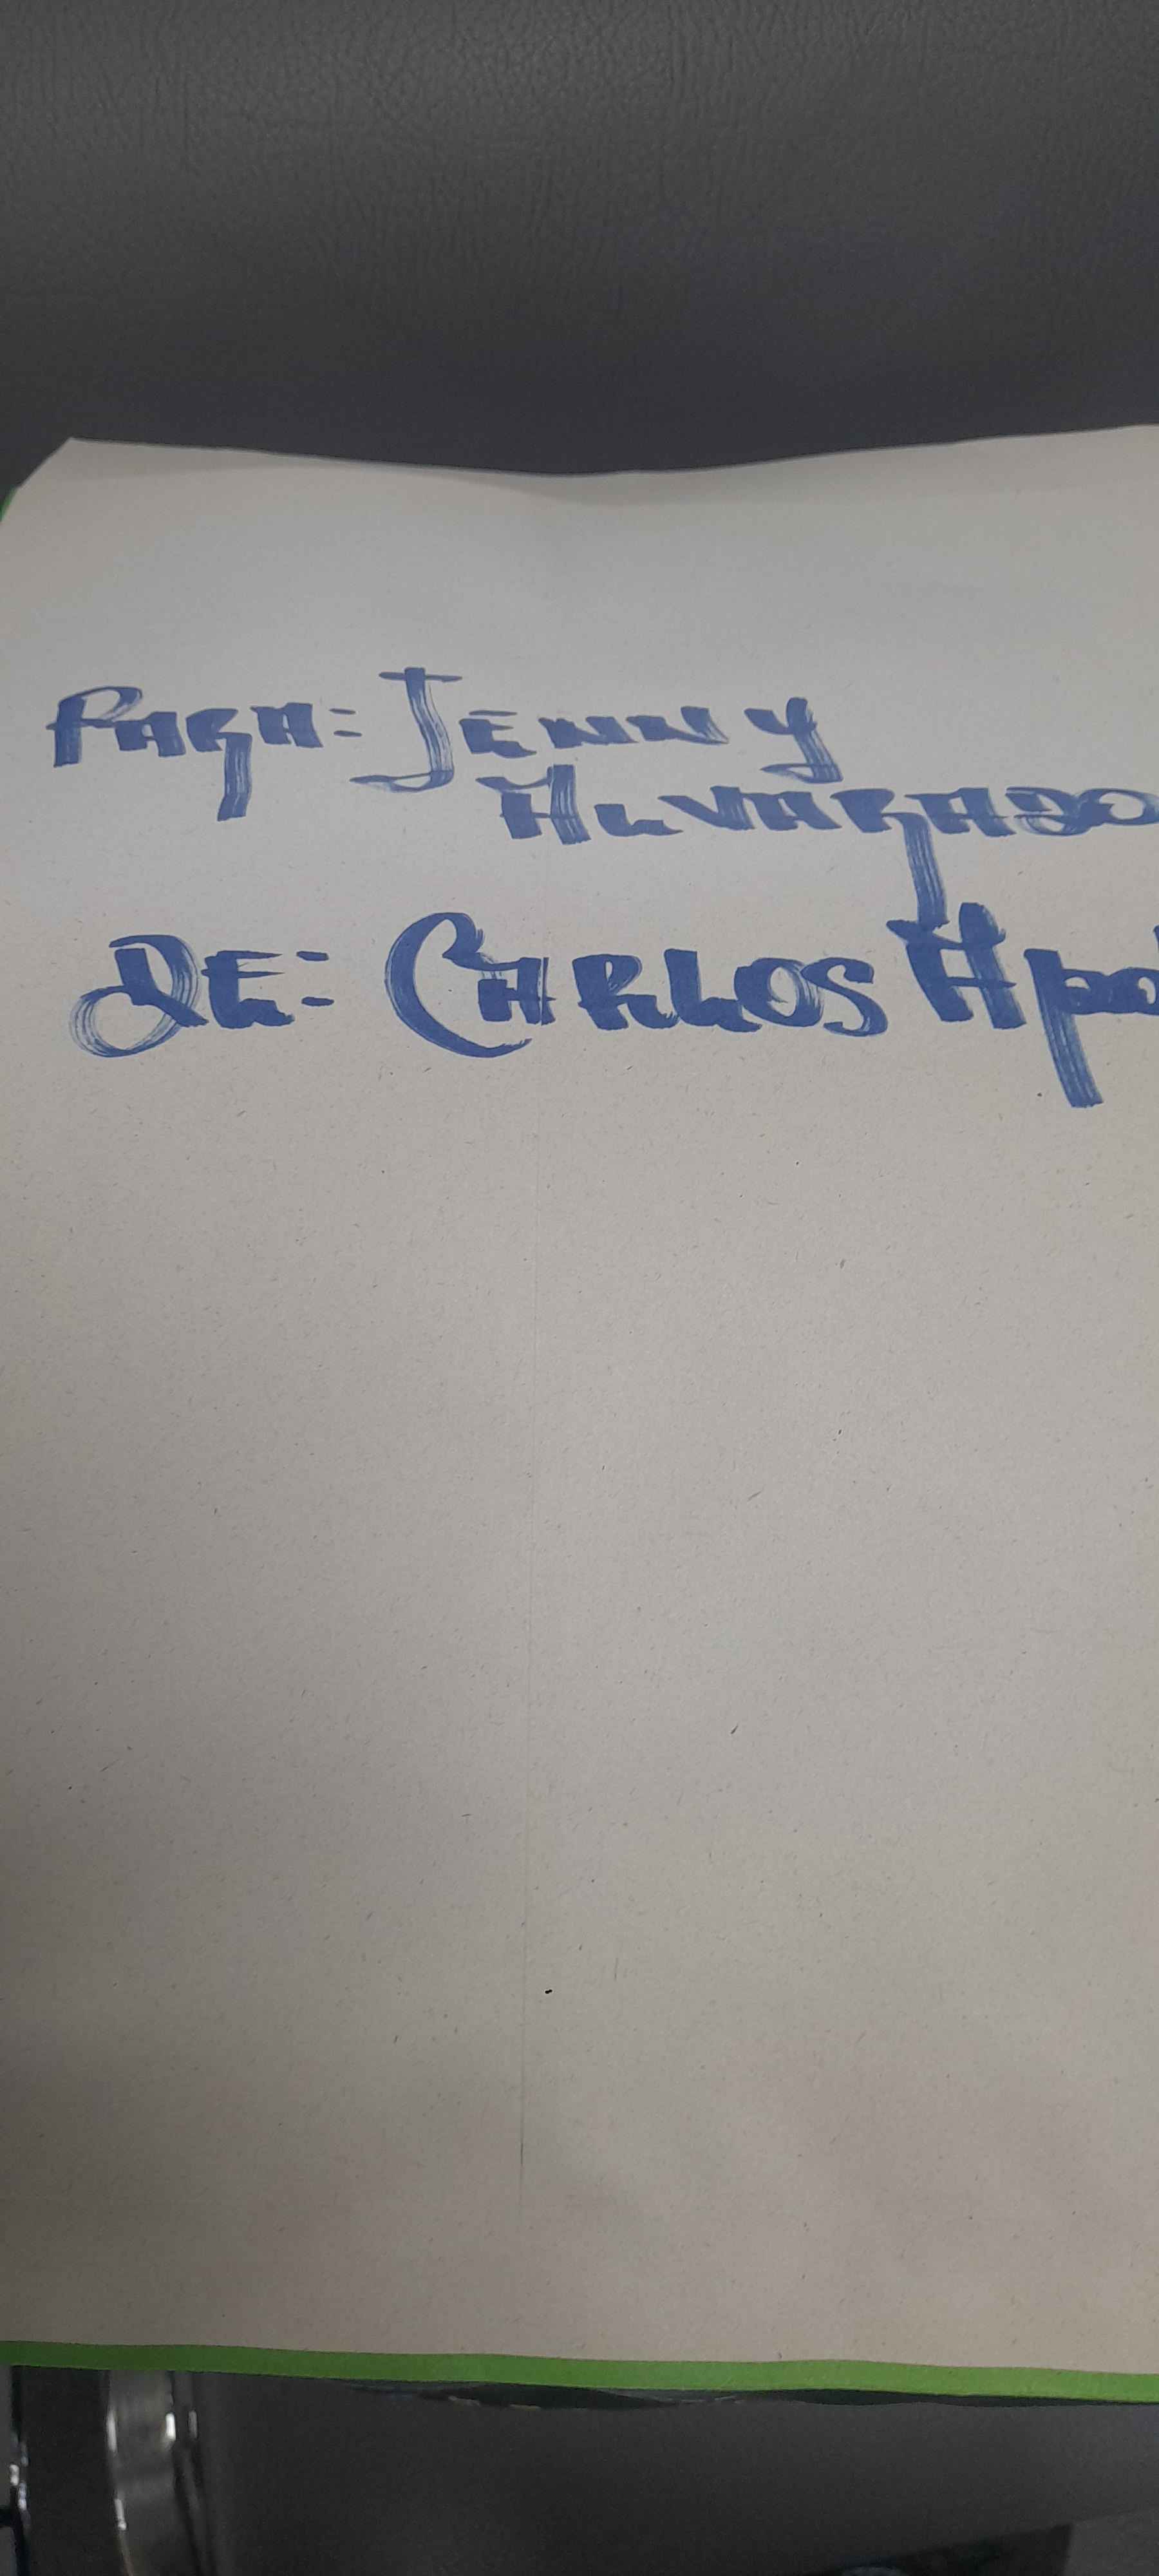 Para: Jenny
Alvarado
De: Carlos